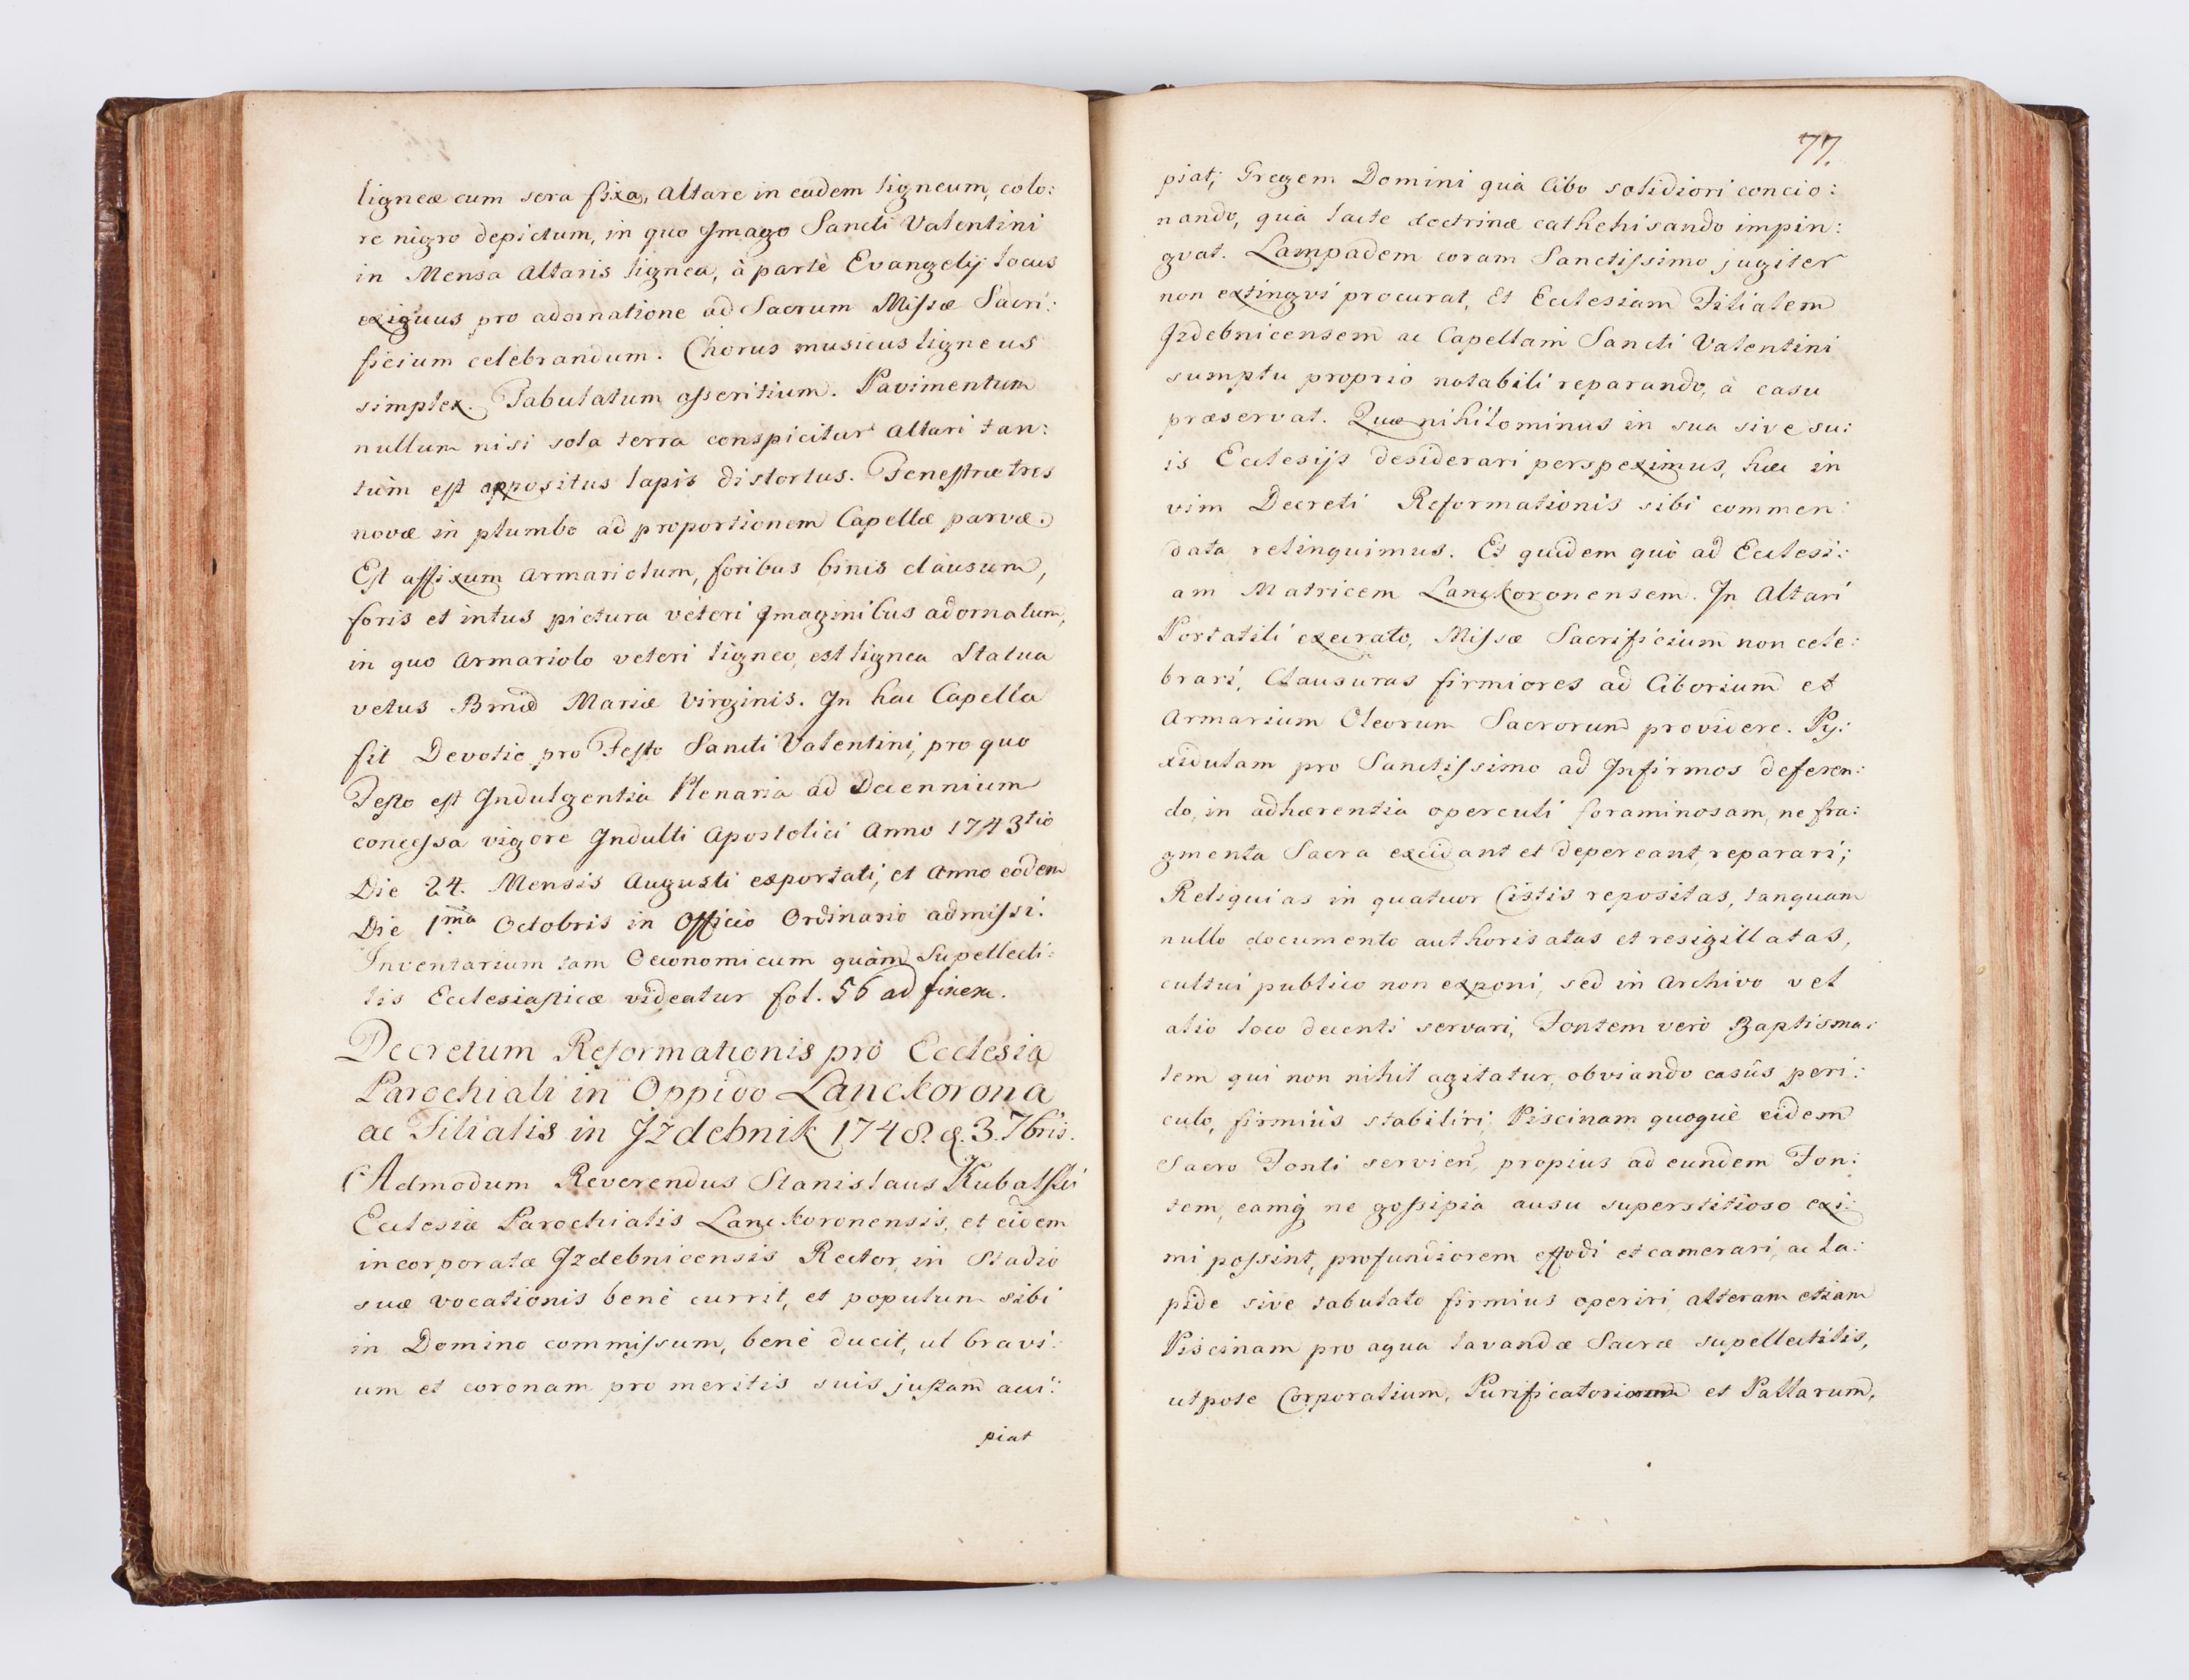 ligneæ cum sera fixa, Altare in eadem ligneum, colo:
re nigro depictum, in quo Imago Sancti Valentini
in Mensa Altaris lignea, à partè Evangelij locus
exiguus pro adornatione ad Sacrum Missæ Sacri:
ficium celebrandum. Chorus musicus ligneus
simplex. Tabulatum asseritium. Pavimentum
nullum nisi sola terra conspicitur Altari tan:
tùm est appositus lapis distortus. Fenestræ tres
novæ in plumbo ad proportionem Capellæ parvæ.
Est affixum Armariolum, foribus binis clausum,
foris et intus pictura veteri Imaginibus adornatum,
in quo Armariolo veteri ligneo, est lignea Statua
vetus Bmæ Mariæ Virginis. In hac Capella
fit Devotio pro Festo Sancti Valentini, pro quo
Festo est Indulgentia Plenaria ad Decennium
concessa vigore Indulti Apostolici Anno 1743tio
Die 24. Mensis Augusti exportati, et Anno eodem
Die 1ma Octobris in Officio Ordinario admissi.
Inventarium tam Oeconomicum quàm Supellecti:
lis Ecclesiasticæ videatur fol. 56 ad finem.
Decretum Reformationis pro Ecclesia
Parochiali in Oppido Lanckorona
ac Filialis in Izdebnik 1748 d. 3. 7bris.
Admodum Reverendus Stanislaus Kubalski
Ecclesiæ Parochialis Lanckoronensis, et eidem
incorporatæ Izdebnicensis Rector, in Stadio
suæ vocationis benè currit, et populum sibi
in Domino commissum, benè ducit, ut bravi:
um et coronam pro meritis suis justam acci:
piat
77.
piat; Gregem Domini quà Cibo solidiori concio:
nando, quà lacte doctrinæ cathehisando impin:
gvat. Lampadem coram Sanctissimo jugiter
non extingvi procurat, Et Ecclesiam Filialem
Izdebnicensem ac Capellam Sancti Valentini
sumptu proprio notabili reparando, à casu
præservat. Quæ nihilominus in sua sive su:
is Ecclesijs desiderari perspeximus, hæc in
vim Decreti Reformationis sibi commen:
data relinquimus. Et quidem quò ad Ecclesi:
am Matricem Lanckoronensem. In Altari
Portatili execrato, Missæ Sacrificium non cele:
brari, Clausuras firmiores ad Ciborium et
Armarium Oleorum Sacrorum providere. Py:
xidulam pro Sanctissimo ad Infirmos deferen:
do, in adhærentia operculi foraminosam, ne fra:
gmenta Sacra excidant et depereant, reparari;
Reliquias in quatuor Cistis repositas, tanquam
nullo documento authorisatas et resigillatas,
cultui publico non exponi, sed in Archivo vel
alio loco decenti servari, Fontem verò Baptisma:
lem qui non nihil agitatur, obviando casûs peri:
culo, firmiùs stabiliri, Piscinam quoquè eidem
Sacro Fonti servien, propius ad eundem Fon:
tem, eamq ne gossipia ausu superstitioso exi:
mi possint, profundiorem effodi et camerari, ac la:
pide sive tabulato firmius operiri, alteram etiam
Piscinam pro aqua lavandæ Sacræ supellectilis,
utpote Corporalium, Purificatoriorum et Pallarum,